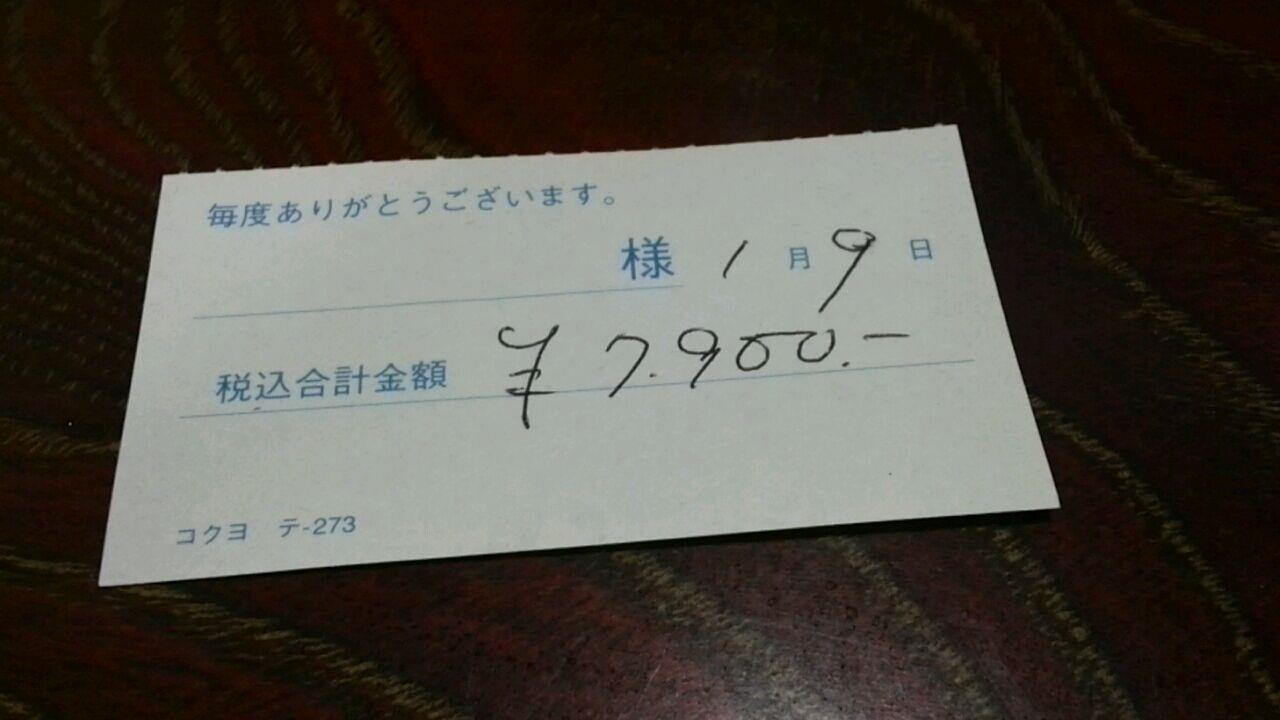 毎度ありがとうございます。
様 1月9日
税込合計金額 ¥7.900.-
コクヨ テ-273